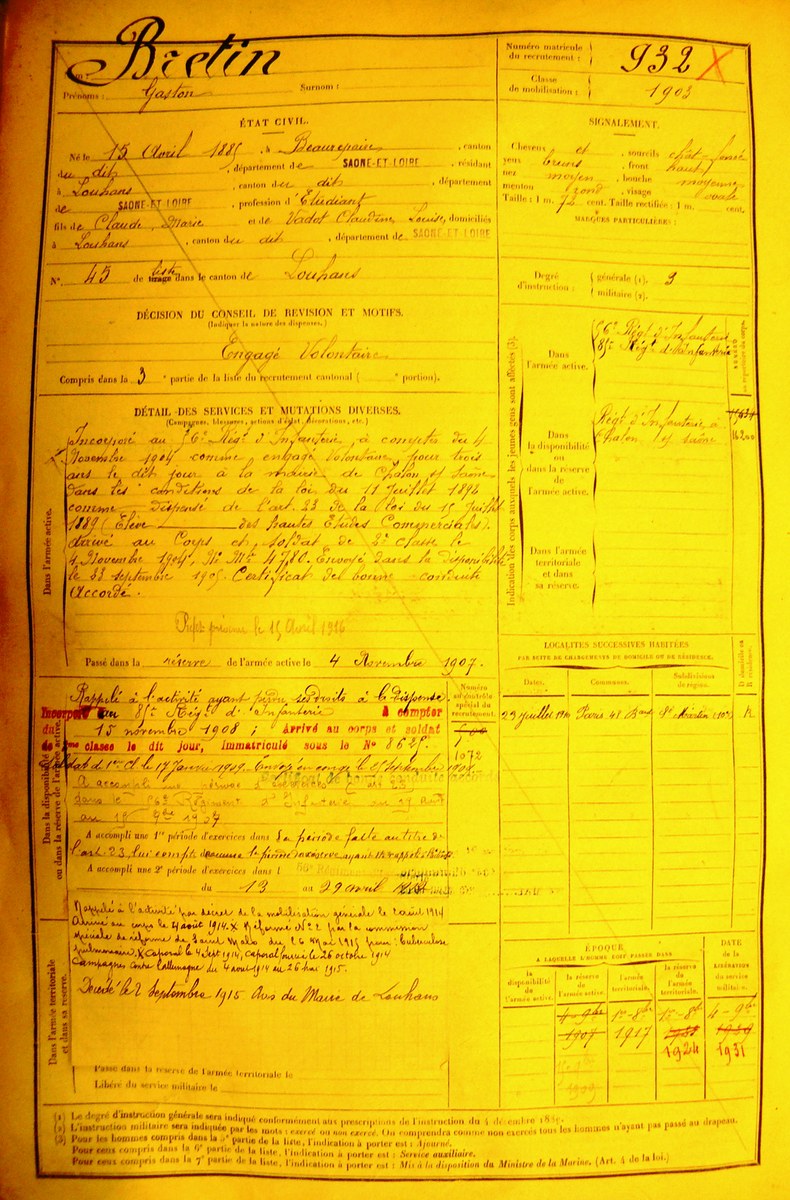 Bretin
Nom :
Prénoms : Gaston Surnom :
Numéro matricule du recrutement : 932 X
Classe de mobilisation : 1903
ÉTAT CIVIL.
Né le 15 Avril 1885, à Beaurepaire, canton
du dit, département de SAONE-ET-LOIRE, résidant
à Louhans, canton du dit, département
de SAONE-ET-LOIRE, profession d'Etudiant
fils de Claude Marie et de Vadot Claudine Louise, domiciliés
à Louhans, canton du dit, département de SAONE-ET-LOIRE
N° 45 de liste tirage dans le canton de Louhans
SIGNALEMENT.
Cheveux et sourcils chât. foncé
yeux bruns, front haut
nez moyen, bouche moyenne
menton rond, visage ovale
Taille : 1 m. 72 cent. Taille rectifiée : 1 m. cent.
MARQUES PARTICULIÈRES :
Degré d'instruction : générale (1). 3
militaire (2).
DÉCISION DU CONSEIL DE REVISION ET MOTIFS.
(Indiquer la nature des dispenses.)
Engagé Volontaire
Compris dans la 3e partie de la liste du recrutement cantonal ( e portion).
DÉTAIL DES SERVICES ET MUTATIONS DIVERSES.
(Campagnes, blessures, actions d'éclat, décorations, etc.)
Dans l'armée active.
Incorporé au 56e Régt d'Infanterie, à compter du 4
Novembre 1904 comme engagé volontaire pour trois
ans le dit jour à la mairie de Chalon s/ Saône
dans les conditions de la loi du 11 Juillet 1892
comme dispensé de l'art. 23 de la loi du 15 Juillet
1889 (Elève des hautes Etudes Commerciales).
Arrivé au Corps et soldat de 2e classe le
4 Novembre 1904, N° Mle 4780. Envoyé dans la disponibilité
le 23 septembre 1905. Certificat de bonne conduite
Accordé.
le 15 Avril 1916
Passé dans la réserve de l'armée active le 4 Novembre 1907.
Indication des corps auxquels les jeunes gens sont affectés (3).
Dans l'armée active.
56e Régt d'Infanterie
85e Régt d'Infanterie
NUMÉRO au répertoire du corps.
Dans la disponibilité ou dans la réserve de l'armée active.
Régt d'Infanterie à
Chalon s/ Saône
16200
Dans l'armée territoriale et dans sa réserve.
LOCALITÉS SUCCESSIVES HABITÉES
PAR SUITE DE CHANGEMENTS DE DOMICILE OU DE RÉSIDENCE.
Dates. Communes. Subdivisions de région. D domicile ou R résidence.
Paris R
Dans la disponibilité ou dans la réserve de l'armée active.
Rappelé à l'activité ayant perdu ses droits à la dispense
Incorporé au 85e Régt d'Infanterie à compter
du 15 novembre 1908 ; Arrivé au corps et soldat
de 2ème classe le dit jour, immatriculé sous le N°
Soldat de 1re Cl le 17 Janvier 1909. Envoyé en congé le
Numéro au contrôle spécial du recrutement.
1072
A accompli une période d'exercices
dans le 56e Régiment d'Infanterie du 29 Août
au
A accompli une 1re période d'exercices dans La période faite au titre de
l'art. 23, lui compte comme la période
A accompli une 2e période d'exercices dans l
du 13 au 29 avril
Dans l'armée territoriale et dans sa réserve.
Rappelé à l'activité par décret de la mobilisation générale le 2 août 1914
Arrivé au corps le 4 août 1914. X Réformé N° 2 par la commission
spéciale de réforme de Saint Malo du 26 Mai 1915 pour : tuberculose
pulmonaire. X Caporal le 4 Sept 1914, caporal fourrier le 26 octobre 1914
Campagnes contre l'allemagne du 4 août 1914 au 26 mai 1915.
Décédé le 2 Septembre 1915 Avis du Maire de Louhans
Passé dans la réserve de l'armée territoriale le
Libéré du service militaire le
ÉPOQUE
A LAQUELLE L'HOMME DOIT PASSER DANS
DATE de la LIBÉRATION du service militaire.
la disponibilité de l'armée active. la réserve de l'armée active. l'armée territoriale. la réserve de l'armée territoriale.
4 - 9bre 1er - 8bre 1er - 8bre 4 - 9bre
1907 1917
1924 1931
(1) Le degré d'instruction générale sera indiqué conformément aux prescriptions de l'instruction du 4 décembre 1889.
(2) L'instruction militaire sera indiquée par les mots : exercé ou non exercé. On comprendra comme non exercés tous les hommes n'ayant pas passé au drapeau.
(3) Pour les hommes compris dans la 5e partie de la liste, l'indication à porter est : Ajourné.
Pour ceux compris dans la 6e partie de la liste, l'indication à porter est : Service auxiliaire.
Pour ceux compris dans la 7e partie de la liste, l'indication à porter est : Mis à la disposition du Ministre de la Marine. (Art. 4 de la loi.)